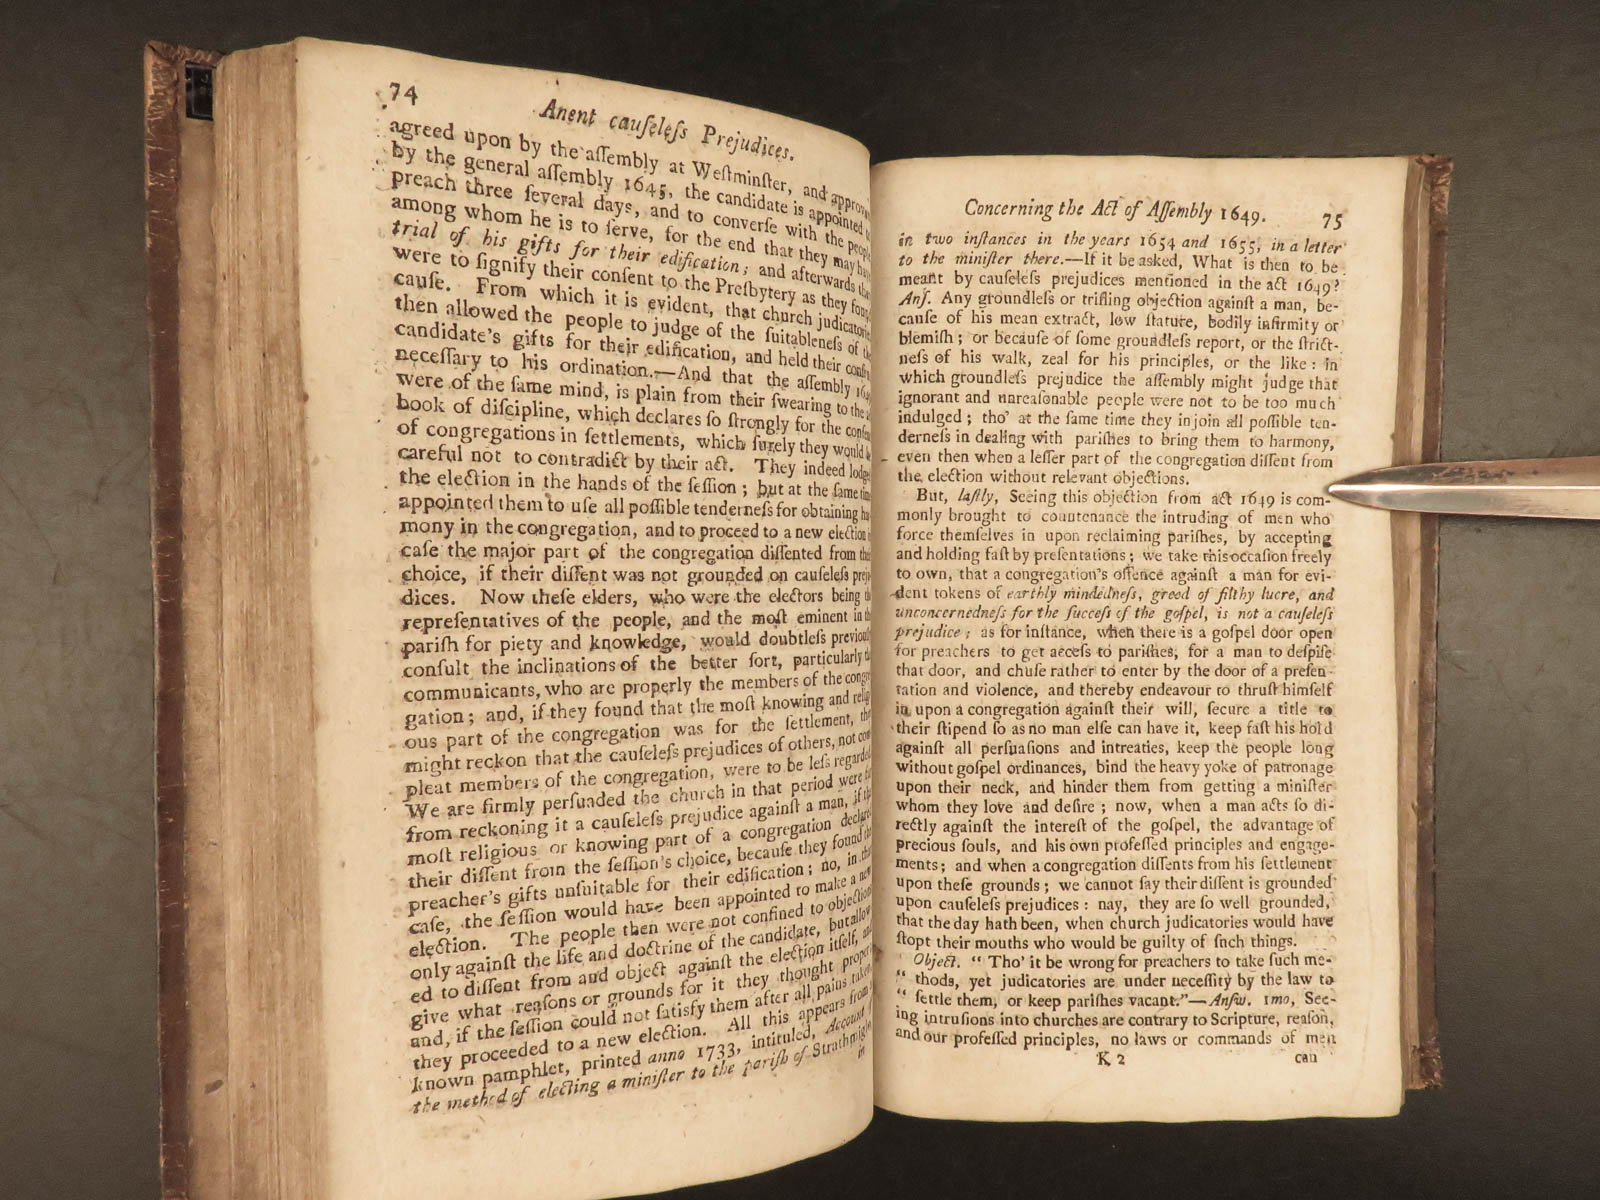 74
Anent cauſeleſs Prejudices.
agreed upon by the aſſembly at Weſtminſter, and
by the general aſſembly 1645, the candidate is appointed
preach three ſeveral days, and to converſe with the
among whom he is to ſerve, for the end that they may
trial of his gifts for their edification; and afterwards
were to ſignify their conſent to the Preſbytery as they
cauſe. From which it is evident, that church
then allowed the people to judge of the ſuitableneſs of
candidate's gifts for their edification, and held their
neceſſary to his ordination.—And that the aſſembly
were of the ſame mind, is plain from their ſwearing to the
book of diſcipline, which declares ſo ſtrongly for the
of congregations in ſettlements, which ſurely they would
careful not to contradict by their act. They indeed
the election in the hands of the ſeſſion; but at the ſame
appointed them to uſe all poſſible tenderneſs for obtaining
mony in the congregation, and to proceed to a new election
caſe the major part of the congregation diſſented from
choice, if their diſſent was not grounded on cauſeleſs
dices. Now theſe elders, who were the electors being
repreſentatives of the people, and the moſt eminent in
pariſh for piety and knowledge, would doubtleſs
conſult the inclinations of the better ſort, particularly
communicants, who are properly the members of the
gation; and, if they found that the moſt knowing and
ous part of the congregation was for the ſettlement,
might reckon that the cauſeleſs prejudices of others, not
pleat members of the congregation, were to be leſs
We are firmly perſuaded the church in that period were
from reckoning it a cauſeleſs prejudice againſt a man, if
moſt religious or knowing part of a congregation
their diſſent from the ſeſſion's choice, becauſe they found
preacher's gifts unſuitable for their edification; no, in
caſe, the ſeſſion would have been appointed to make a new
election. The people then were not confined to
only againſt the life and doctrine of the candidate, but
ed to diſſent from and object againſt the election itſelf,
give what reaſons or grounds for it they thought
and, if the ſeſſion could not ſatisfy them after all pains
they proceeded to a new election. All this appears from
known pamphlet, printed anno 1733, intituled, Account
the method of electing a miniſter to the pariſh of
in
Concerning the Act of Aſſembly 1649. 75
in two inſtances in the years 1654 and 1655, in a letter
to the miniſter there.—If it be asked, What is then to be
meant by cauſeleſs prejudices mentioned in the act 1649?
Anſ. Any groundleſs or trifling objection againſt a man, be-
cauſe of his mean extract, low ſtature, bodily infirmity or
blemiſh; or becauſe of ſome groundleſs report, or the ſtrict-
neſs of his walk, zeal for his principles, or the like: in
which groundleſs prejudice the aſſembly might judge that
ignorant and unreaſonable people were not to be too much
indulged; tho' at the ſame time they injoin all poſſible ten-
derneſs in dealing with pariſhes to bring them to harmony,
even then when a leſſer part of the congregation diſſent from
the election without relevant objections.
But, laſtly, Seeing this objection from act 1649 is com-
monly brought to countenance the intruding of men who
force themſelves in upon reclaiming pariſhes, by accepting
and holding faſt by preſentations; we take this occaſion freely
to own, that a congregation's offence againſt a man for evi-
dent tokens of earthly mindedneſs, greed of filthy lucre, and
unconcernedneſs for the ſucceſs of the goſpel, is not a cauſeleſs
prejudice; as for inſtance, when there is a goſpel door open
for preachers to get acceſs to pariſhes, for a man to deſpiſe
that door, and chuſe rather to enter by the door of a preſen-
tation and violence, and thereby endeavour to thruſt himſelf
in upon a congregation againſt their will, ſecure a title to
their ſtipend ſo as no man elſe can have it, keep faſt his hold
againſt all perſuaſions and intreaties, keep the people long
without goſpel ordinances, bind the heavy yoke of patronage
upon their neck, and hinder them from getting a miniſter
whom they love and deſire; now, when a man acts ſo di-
rectly againſt the intereſt of the goſpel, the advantage of
precious ſouls, and his own profeſſed principles and engage-
ments; and when a congregation diſſents from his ſettlement
upon theſe grounds; we cannot ſay their diſſent is grounded
upon cauſeleſs prejudices: nay, they are ſo well grounded,
that the day hath been, when church judicatories would have
ſtopt their mouths who would be guilty of ſuch things.
Object. “ Tho' it be wrong for preachers to take ſuch me-
“ thods, yet judicatories are under neceſſity by the law to
“ ſettle them, or keep pariſhes vacant.”—Anſw. 1mo, See-
ing intruſions into churches are contrary to Scripture, reaſon,
and our profeſſed principles, no laws or commands of men
K 2 can